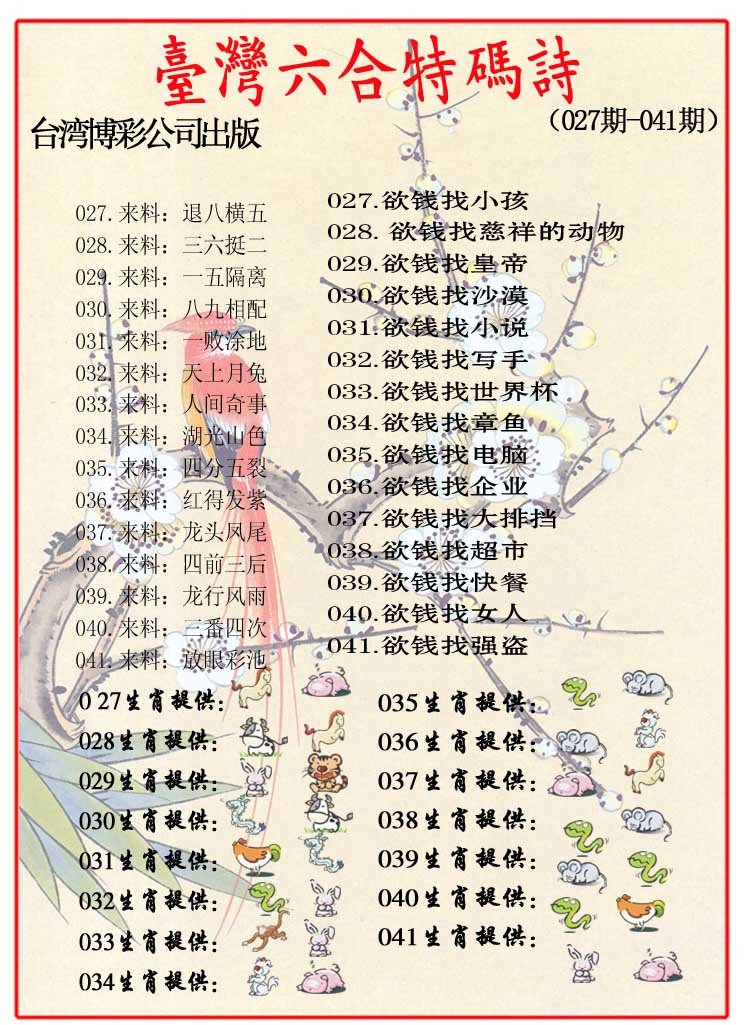 臺灣六合特碼詩
台湾博彩公司出版
（027期-041期）
027.来料：退八横五
028.来料：三六挺二
029.来料：一五隔离
030.来料：八九相配
031.来料：一败涂地
032.来料：天上月兔
033.来料：人间奇事
034.来料：湖光山色
035.来料：四分五裂
036.来料：红得发紫
037.来料：龙头风尾
038.来料：四前三后
039.来料：龙行风雨
040.来料：三番四次
041.来料：放眼彩池
027.欲钱找小孩
028. 欲钱找慈祥的动物
029.欲钱找皇帝
030.欲钱找沙漠
031.欲钱找小说
032.欲钱找写手
033.欲钱找世界杯
034.欲钱找章鱼
035.欲钱找电脑
036.欲钱找企业
037.欲钱找大排挡
038.欲钱找超市
039.欲钱找快餐
040.欲钱找女人
041.欲钱找强盗
027生肖提供：
028生肖提供：
029生肖提供：
030生肖提供：
031生肖提供：
032生肖提供：
033生肖提供：
034生肖提供：
035生肖提供：
036生肖提供：
037生肖提供：
038生肖提供：
039生肖提供：
040生肖提供：
041生肖提供：